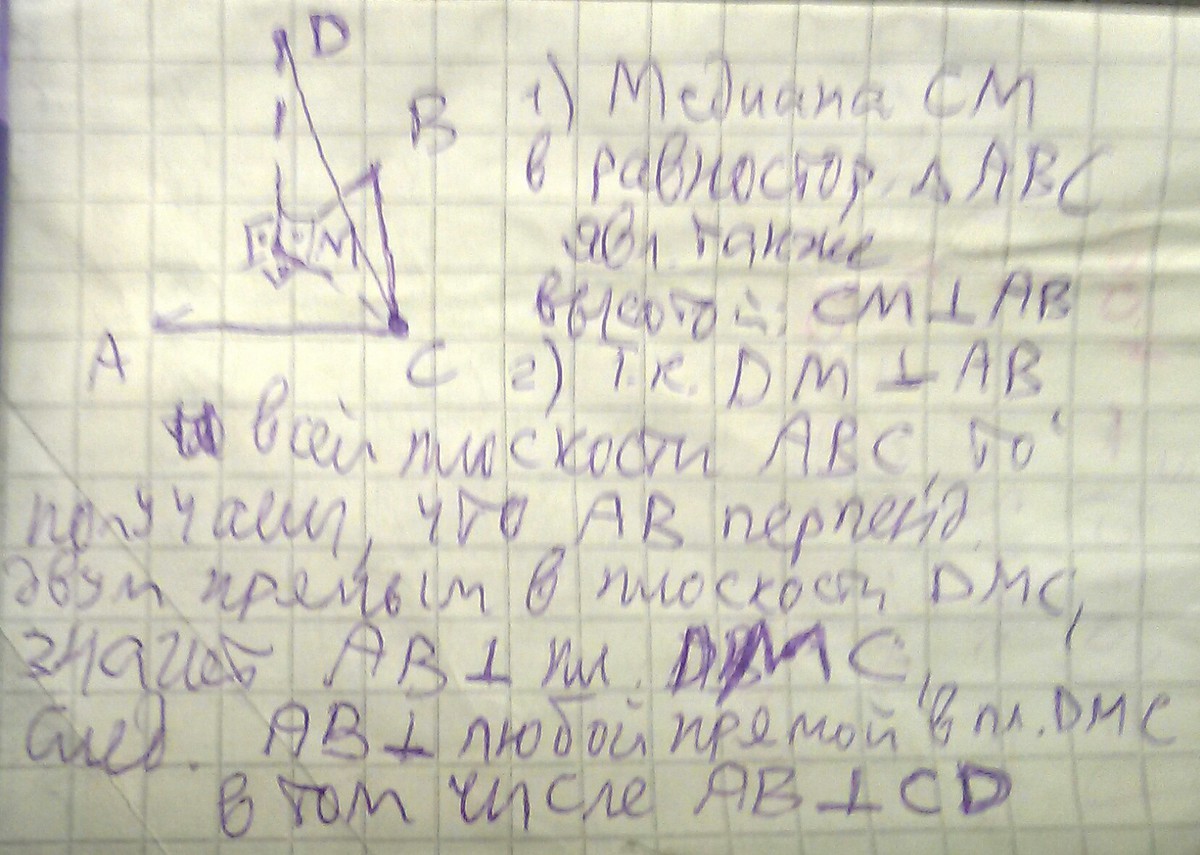 D
B
M
A
C
1) Медиана CM
в равностор. △ ABC
явл. также
высотой: CM ⊥ AB
2) Т.к. DM ⊥ AB
всей плоскости ABC, то
получаем, что AB перпенд.
двум прямым в плоскости DMC,
значит AB ⊥ пл. DMC,
след. AB ⊥ любой прямой в пл. DMC
в том числе AB ⊥ CD